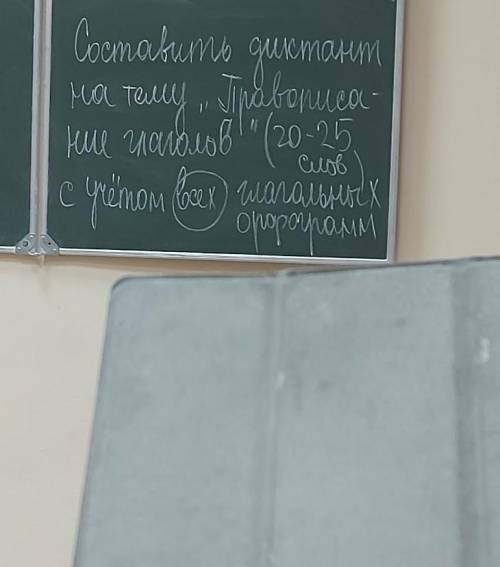 Составить диктант
на тему „Правописа-
ние глаголов" (20-25
слов)
с учётом всех глагальных
орфограмм